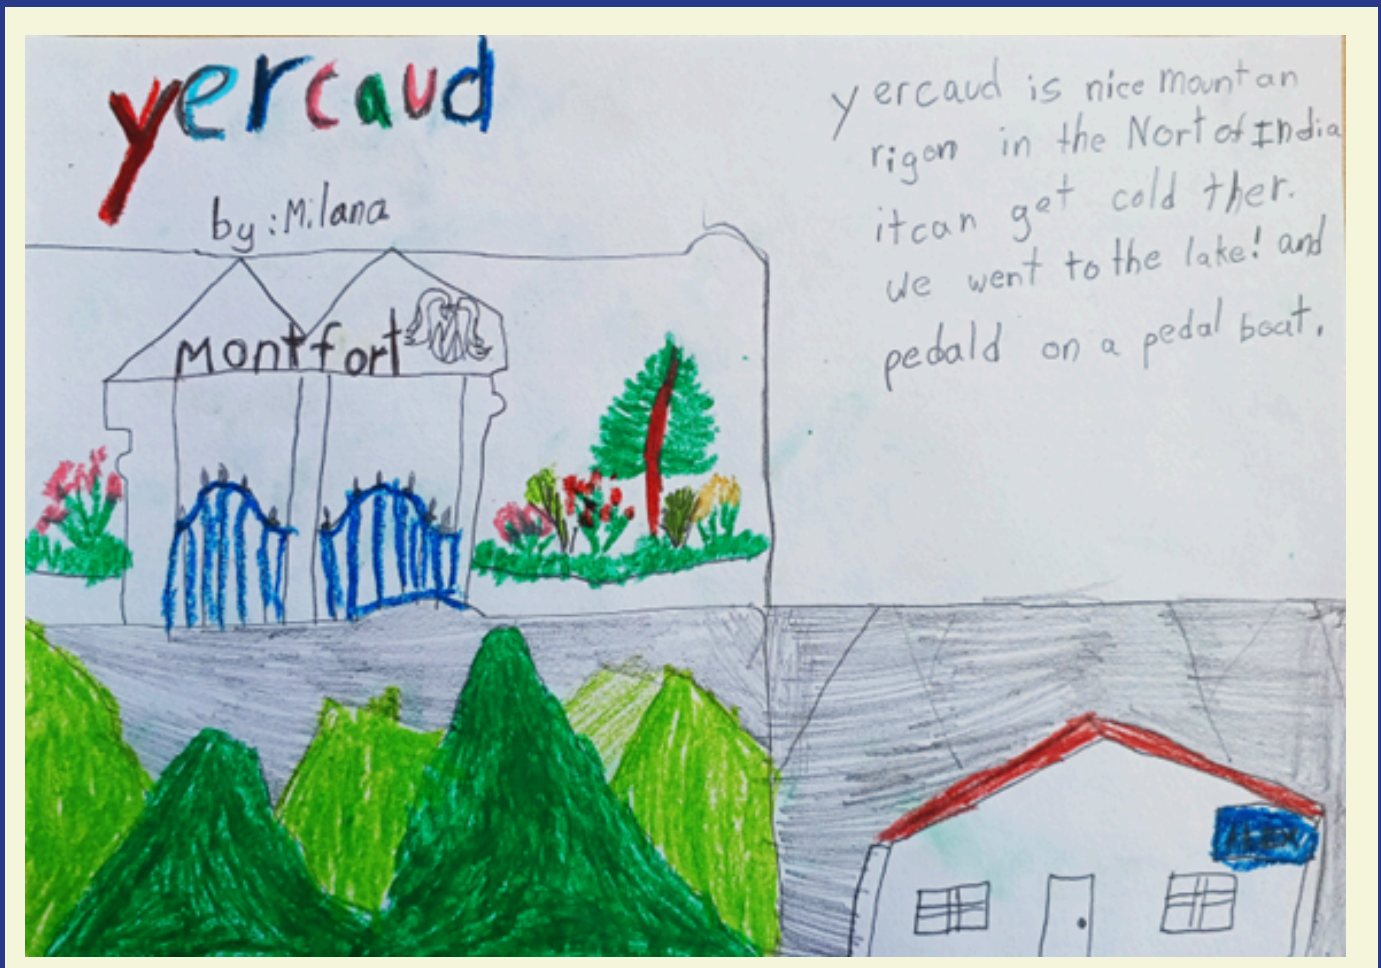 yercaud
by: Milana
Montfort
yercaud is nice mountan
rigon in the Nort of India
it can get cold ther.
we went to the lake! and
pedald on a pedal boat.